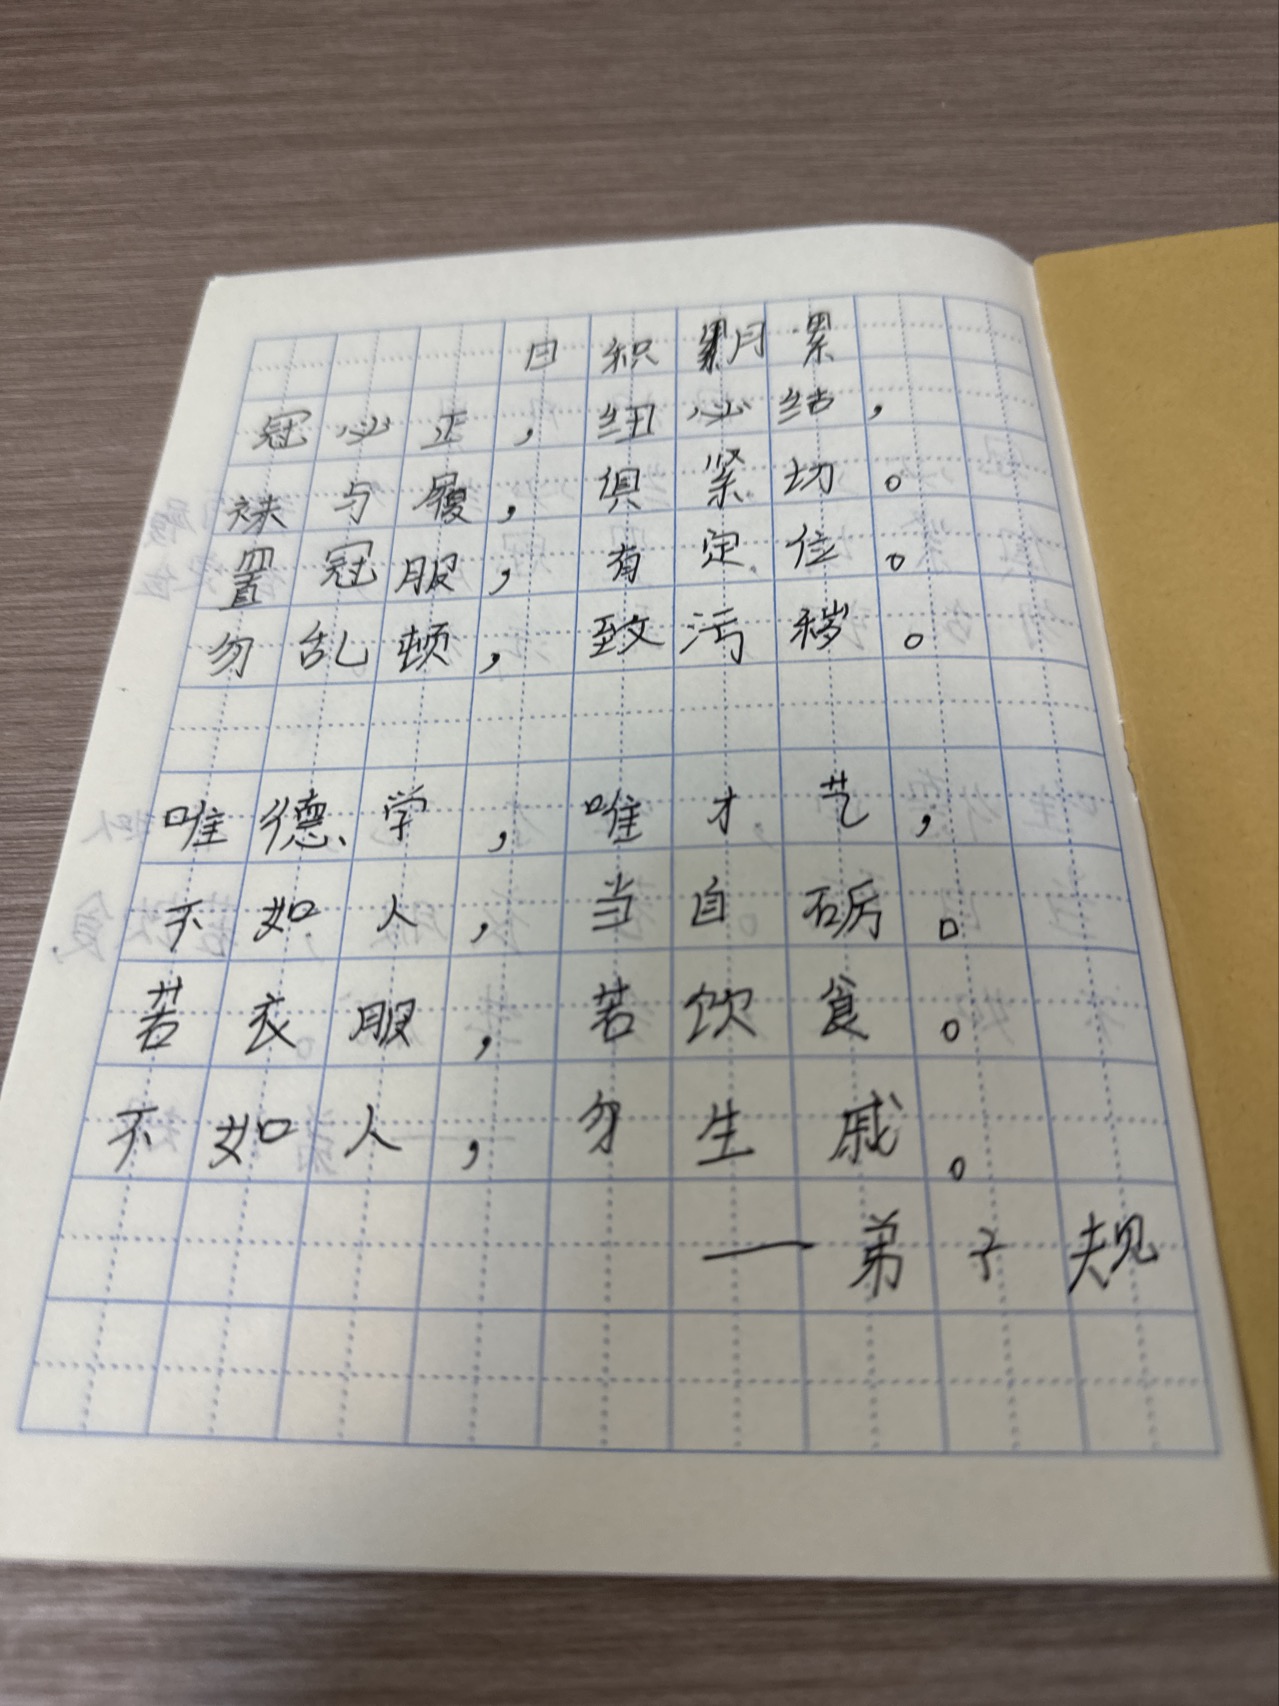 日积月累
冠必正，纽必结，
袜与履，俱紧切。
置冠服，有定位。
勿乱顿，致污秽。
唯德、学，唯才艺，
不如人，当自砺。
若衣服，若饮食。
不如人，勿生戚。
——弟子规